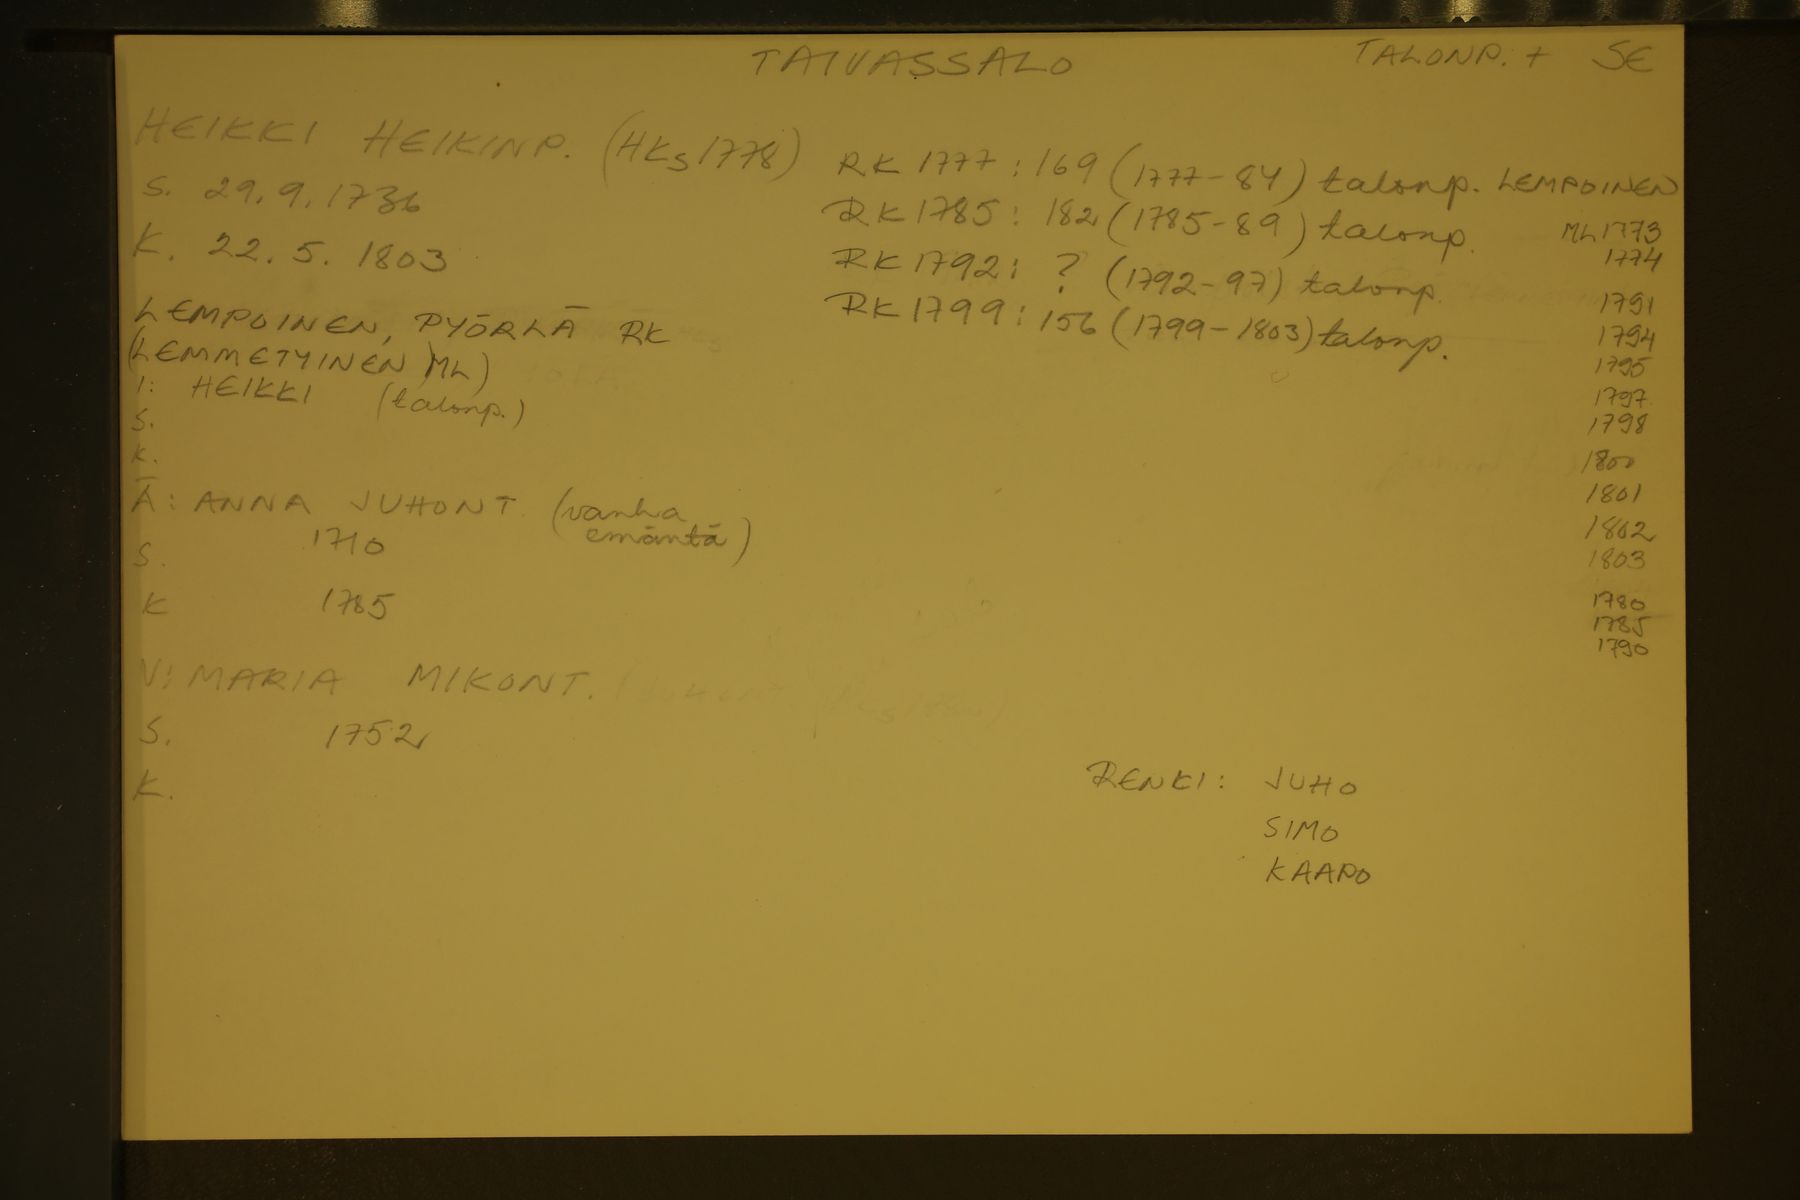 TAIVASSALO
TALONP. + SE
HEIKKI HEIKINP. (HKS 1778)
S. 29.9.1736
K. 22.5.1803
LEMPOINEN, PYÖRLÄ RK
(LEMMETYINEN ML)
I: HEIKKI (talonp.)
S.
K.
Ä: ANNA JUHONT. (vanha
emäntä)
S. 1710
K 1785
V: MARIA MIKONT.
S. 1752
K.
RK 1777: 169 (1777-84) talonp. LEMPOINEN
RK 1785: 182 (1785-89) talonp.
RK 1792: ? (1792-97) talonp.
RK 1799: 156 (1799-1803) talonp.
ML 1773
1774
1791
1794
1795
1797
1798
1800
1801
1802
1803
1780
1785
1790
RENKI: JUHO
SIMO
KAAPO